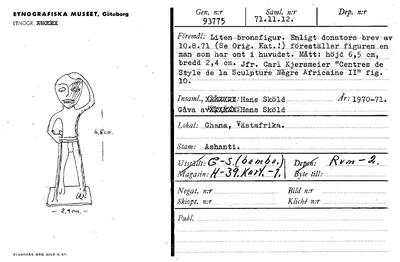 ETNOGRAFISKA MUSEET, Göteborg
ETNOGR.
6,5cm.
2,4cm.
ELANDERS, GBG, A103 3. 67.
Gen. nr
93775
Saml. nr
71.11.12.
Dep. nr
Föremål: Liten bronsfigur. Enligt donators brev av
10.8.71 (Se Orig. Kat.!) föreställer figuren en
man som har ont i huvudet. Mått: höjd 6,5 cm,
bredd 2,4 cm. Jfr. Carl Kjersmeier "Centres de
Style de la Sculpture Nègre Africaine II" fig.
10.
Insaml., Hans Sköld År: 1970-71.
Gåva av Hans Sköld
Lokal: Ghana, Västafrika.
Stam: Ashanti.
Utställt: G-S. (bombo.) Depon: Rum-2.
Magasin: H-39. Kart.-1. Byte till:
Negat. n:r Bild n:r
Skiopt. n:r Kliché n:r
Publ.